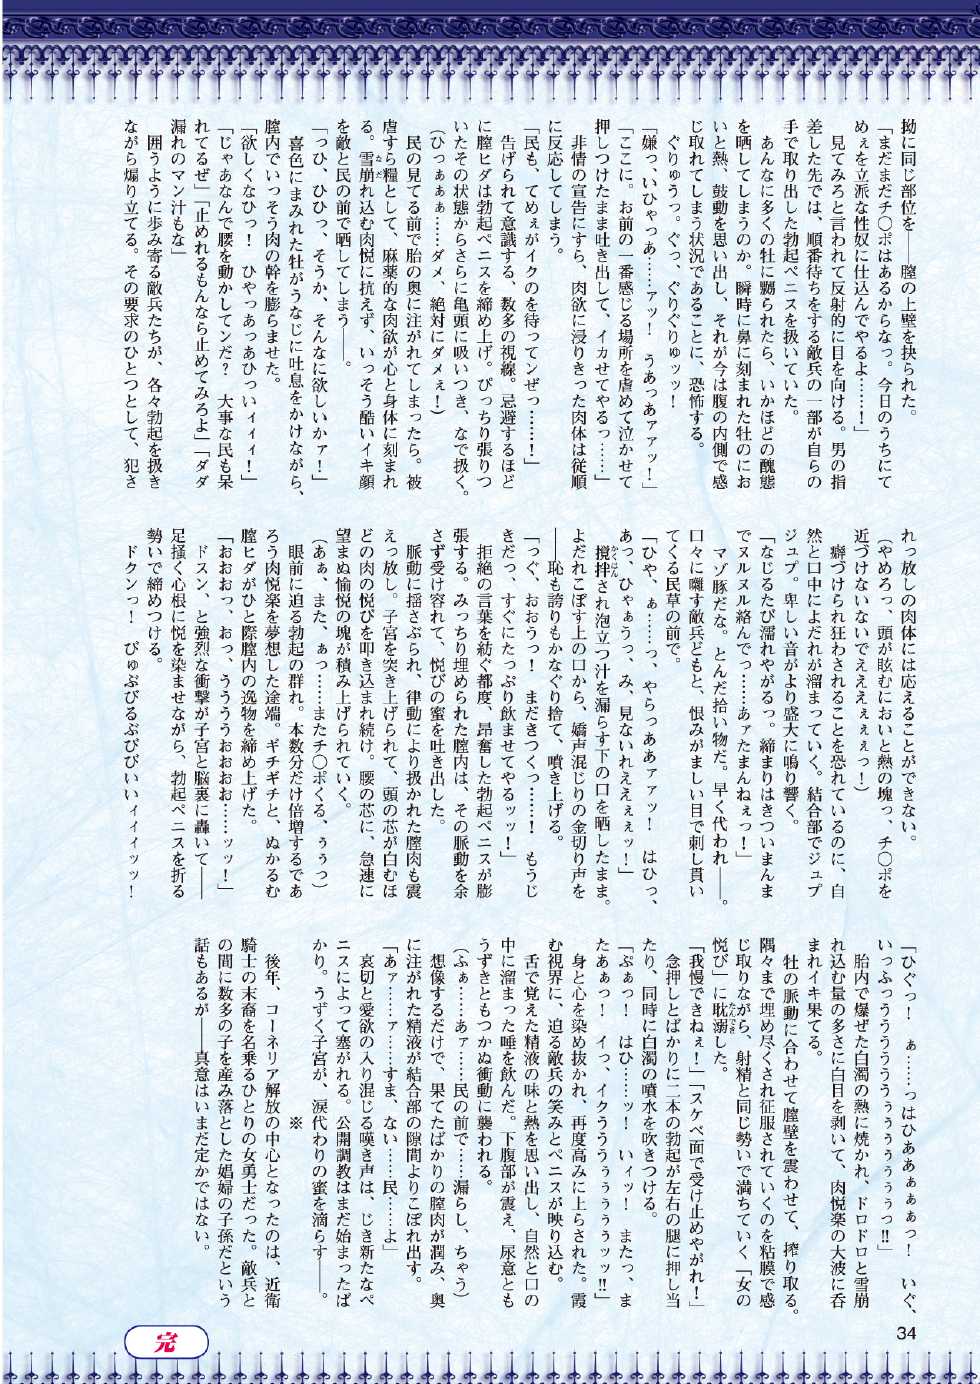 拗に同じ部位を――膣の上壁を抉られた。
「まだまだチ○ポはあるからなっ。今日のうちにて
めぇを立派な性奴に仕込んでやるよ……！」
見てみろと言われて反射的に目を向ける。男の指
差した先では、順番待ちをする敵兵の一部が自らの
手で取り出した勃起ペニスを扱いていた。
あんなに多くの牡に嬲られたら、いかほどの醜態
を晒してしまうのか。瞬時に鼻に刻まれた牡のにお
いと熱、鼓動を思い出し、それが今は腹の内側で感
じ取れてしまう状況であることに、恐怖する。
ぐりゅうっ。ぐっ、ぐりぐりゅッッ！
「嫌っ、いひゃっあ……アッ！　うあっあァアッ！」
「ここに。お前の一番感じる場所を虐めて泣かせて
押しつけたまま吐き出して、イカせてやるっ……」
非情の宣告にすら、肉欲に浸りきった肉体は従順
に反応してしまう。
「民も、てめぇがイクのを待ってンぜっ……！」
告げられて意識する、数多の視線。忌避するほど
に膣ヒダは勃起ペニスを締め上げ。ぴっちり張りつ
いたその状態からさらに亀頭に吸いつき、なで扱く。
（ひっぁぁぁ……ダメ、絶対にダメぇ！）
民の見てる前で胎の奥に注がれてしまったら。被
虐すら糧として、麻薬的な肉欲が心と身体に刻まれ
る。雪崩れ込む肉悦に抗えず、いっそう酷いイキ顔
を敵と民の前で晒してしまう――。
「っひ、ひひっ、そうか、そんなに欲しいかァ！」
喜色にまみれた牡がうなじに吐息をかけながら、
膣内でいっそう肉の幹を膨らませた。
「欲しくなひっ！　ひやっあっあひっいィィ！」
「じゃあなんで腰を動かしてンだ？　大事な民も呆
れてるぜ」「止めれるもんなら止めてみろよ」「ダダ
漏れのマン汁もな」
囲うように歩み寄る敵兵たちが、各々勃起を扱き
ながら煽り立てる。その要求のひとつとして、犯さ
れっ放しの肉体には応えることができない。
（やめろっ、頭が眩むにおいと熱の塊っ、チ○ポを
近づけないないでえええぇぇっ！）
癖づけられ狂わされることを恐れているのに、自
然と口中によだれが溜まっていく。結合部でジュプ
ジュプ。卑しい音がより盛大に鳴り響く。
「なじるたび濡れやがるっ。締まりはきついまんま
でヌルヌル絡んでっ……あァたまんねぇっ！」
マゾ豚だな。とんだ拾い物だ。早く代われ――。
口々に囃す敵兵どもと、恨みがましい目で刺し貫い
てくる民草の前で。
「ひや、ぁ……っ、やらっああァアッ！　はひっ、
あっ、ひゃぁうっ、み、見ないれえええぇッ！」
攪拌され泡立つ汁を漏らす下の口を晒したまま。
よだれこぼす上の口から、嬌声混じりの金切り声を
――恥も誇りもかなぐり捨て、噴き上げる。
「っぐ、おおうっ！　まだきつくっ……！　もうじ
きだっ、すぐにたっぷり飲ませてやるッッ！」
拒絶の言葉を紡ぐ都度、昂奮した勃起ペニスが膨
張する。みっちり埋められた膣内は、その脈動を余
さず受け容れて、悦びの蜜を吐き出した。
脈動に揺さぶられ、律動により扱かれた膣肉も震
えっ放し。子宮を突き上げられて、頭の芯が白むほ
どの肉の悦びを叩き込まれ続け。腰の芯に、急速に
望まぬ愉悦の塊が積み上げられていく。
（あぁ、また、ぁっ……またチ○ポくる、ぅぅっ）
眼前に迫る勃起の群れ。本数分だけ倍増するであ
ろう肉悦楽を夢想した途端。ギチギチと、ぬかるむ
膣ヒダがひと際膣内の逸物を締め上げた。
「おおおっ、おっ、うううぅおおおお……ッッ！」
ドスン、と強烈な衝撃が子宮と脳裏に轟いて――
足掻く心根に悦を染ませながら、勃起ペニスを折る
勢いで締めつける。
ドクンっ！　びゅぷびるぷびびいいィィィッッ！
「ひぐっ！　ぁ……っはひああぁぁぁっ！　いぐ、
いっふっううううううぅぅぅぅぅぅっ!!」
胎内で爆ぜた白濁の熱に焼かれ、ドロドロと雪崩
れ込む量の多さに白目を剥いて、肉悦楽の大波に呑
まれイキ果てる。
牡の脈動に合わせて膣壁を震わせて、搾り取る。
隅々まで埋め尽くされ征服されていくのを粘膜で感
じ取りながら、射精と同じ勢いで満ちていく「女の
悦び」に耽溺した。
「我慢できねぇ！」「スケベ面で受け止めやがれ！」
念押しとばかりに二本の勃起が左右の腿に押し当
たり、同時に白濁の噴水を吹きつける。
「ぷぁっ！　はひ……ッ！　いィッ！　またっ、ま
たあぁっ！　イっ、イクうううぅぅぅぅッッ!!」
身と心を染め抜かれ、再度高みに上らされた。霞
む視界に、迫る敵兵の笑みとペニスが映り込む。
舌で覚えた精液の味と熱を思い出し、自然と口の
中に溜まった唾を飲んだ。下腹部が震え、尿意とも
うずきともつかぬ衝動に襲われる。
（ふぁ……あァ……民の前で……漏らし、ちゃう）
想像するだけで、果てたばかりの膣肉が潤み、奥
に注がれた精液が結合部の隙間よりこぼれ出す。
「あァ……ァ……すま、ない……民……よ」
哀切と愛欲の入り混じる嘆き声は、じき新たなペ
ニスによって塞がれる。公開調教はまだ始まったば
かり。うずく子宮が、涙代わりの蜜を滴らす――。
※
後年、コーネリア解放の中心となったのは、近衛
騎士の末裔を名乗るひとりの女勇士だった。敵兵と
の間に数多の子を産み落とした娼婦の子孫だという
話もあるが――真意はいまだ定かではない。
なだ
かくはん
たんでき
完
34